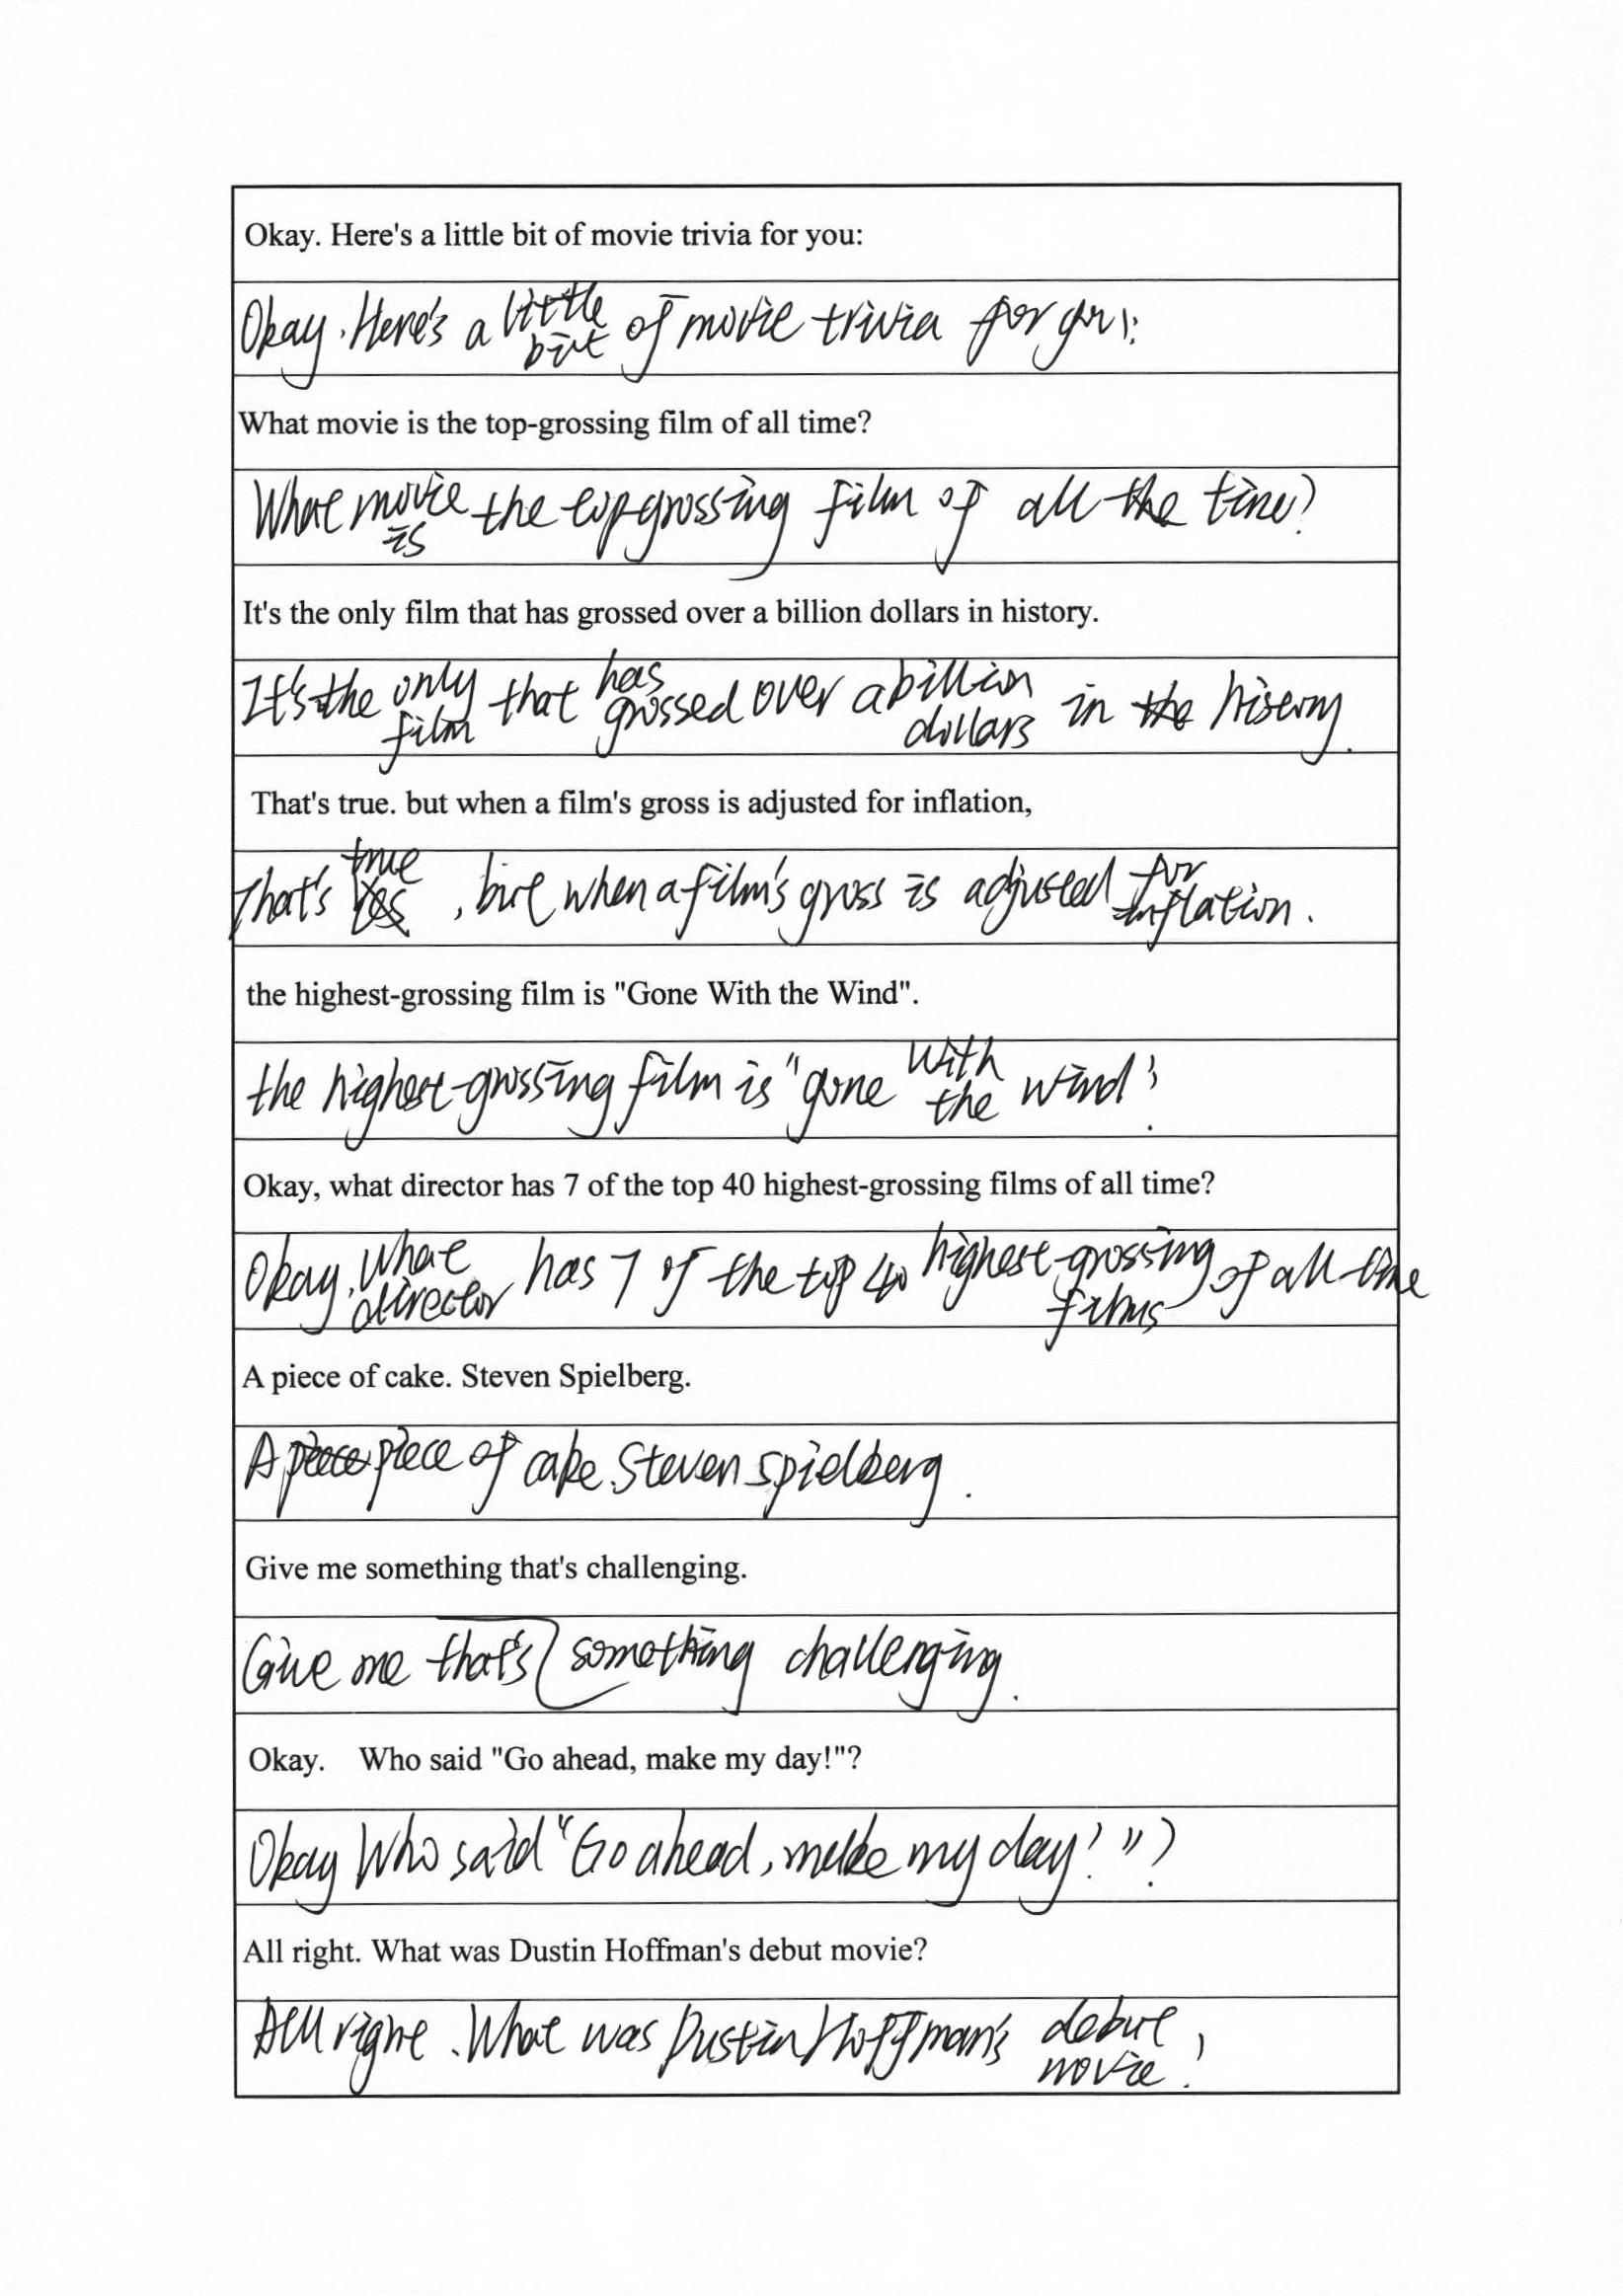 Okay. Here's a little bit of movie trivia for you:
Okay. Here's a little bit of movie trivia for you:
What movie is the top-grossing film of all time?
What movie is the topgrossing film of all the time?
It's the only film that has grossed over a billion dollars in history.
It's the only film that has grossed over a billion dollars in the history.
That's true. but when a film's gross is adjusted for inflation,
That's yes true, but when a film's gross is adjusted for inflation.
the highest-grossing film is "Gone With the Wind".
the highest-grossing film is "gone with the wind".
Okay, what director has 7 of the top 40 highest-grossing films of all time?
Okay, what director has 7 of the top 40 highest-grossing films of all time
A piece of cake. Steven Spielberg.
A piece of cake. Steven Spielberg.
Give me something that's challenging.
Give me that's something challenging.
Okay. Who said "Go ahead, make my day!"?
Okay Who said "Go ahead, make my day!"?
All right. What was Dustin Hoffman's debut movie?
All right. What was Dustin Hoffman's debut movie?